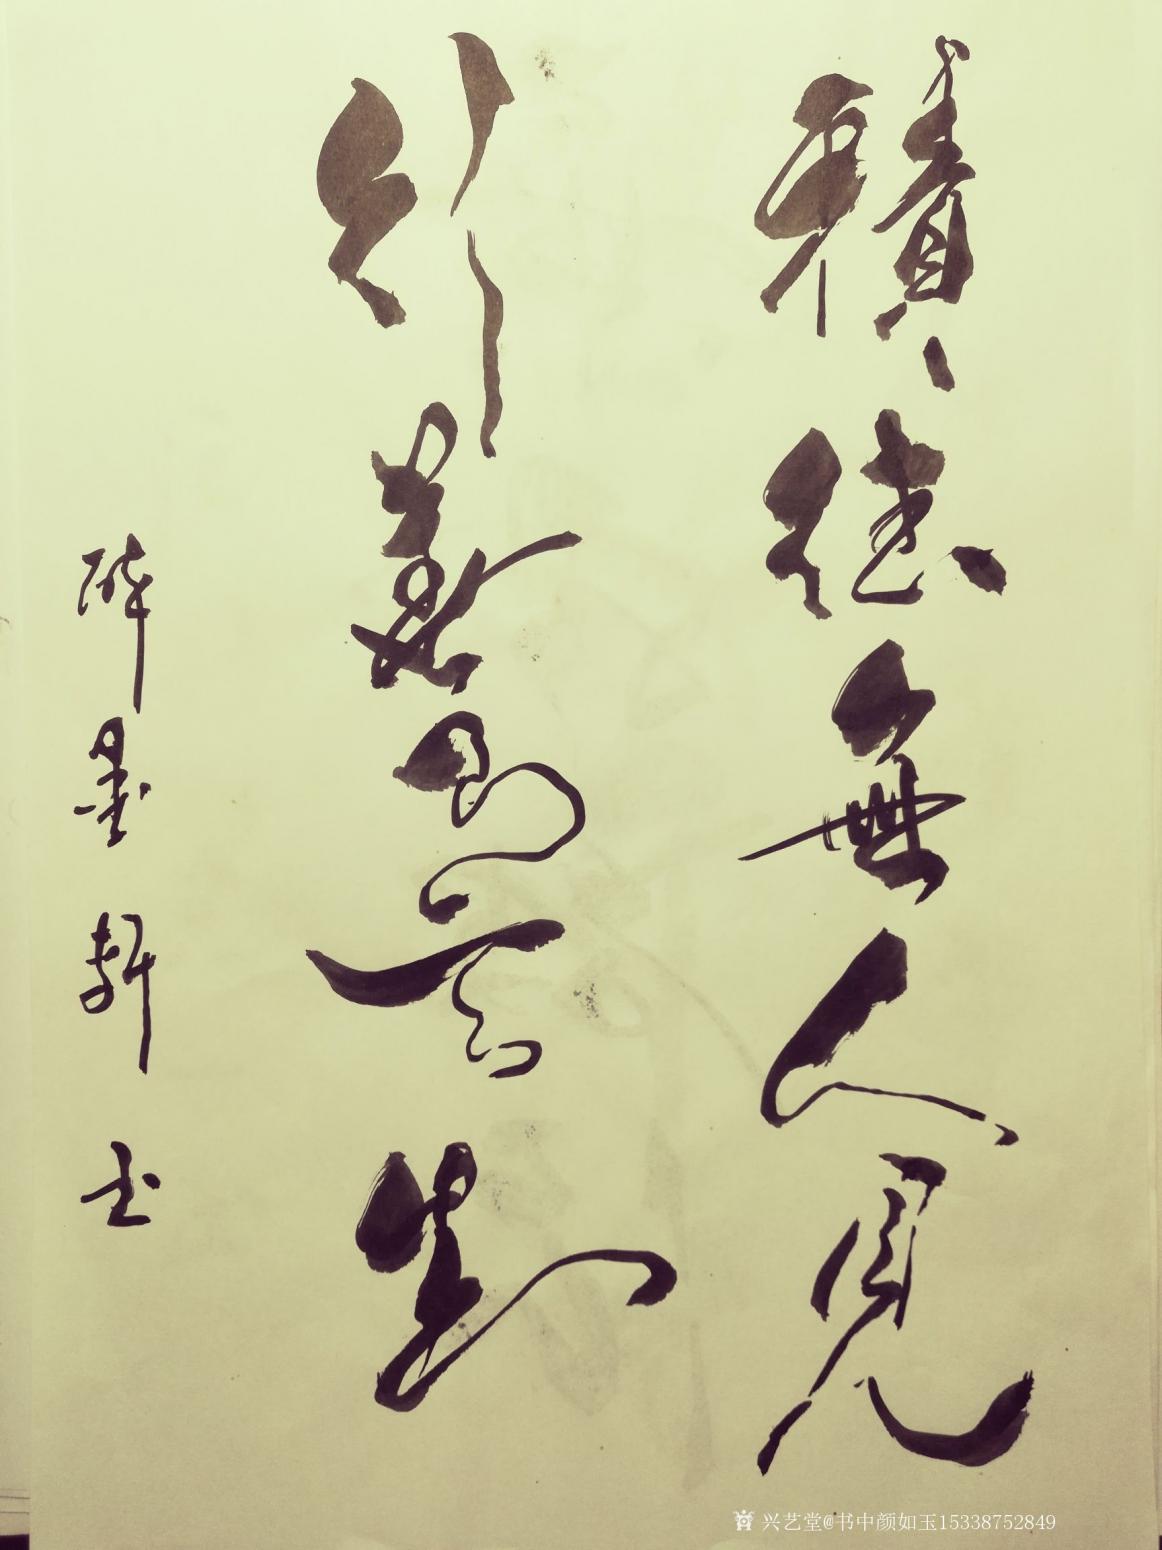 積德無人見
行善自有天知
醉墨軒書
兴艺堂@书中颜如玉15338752849